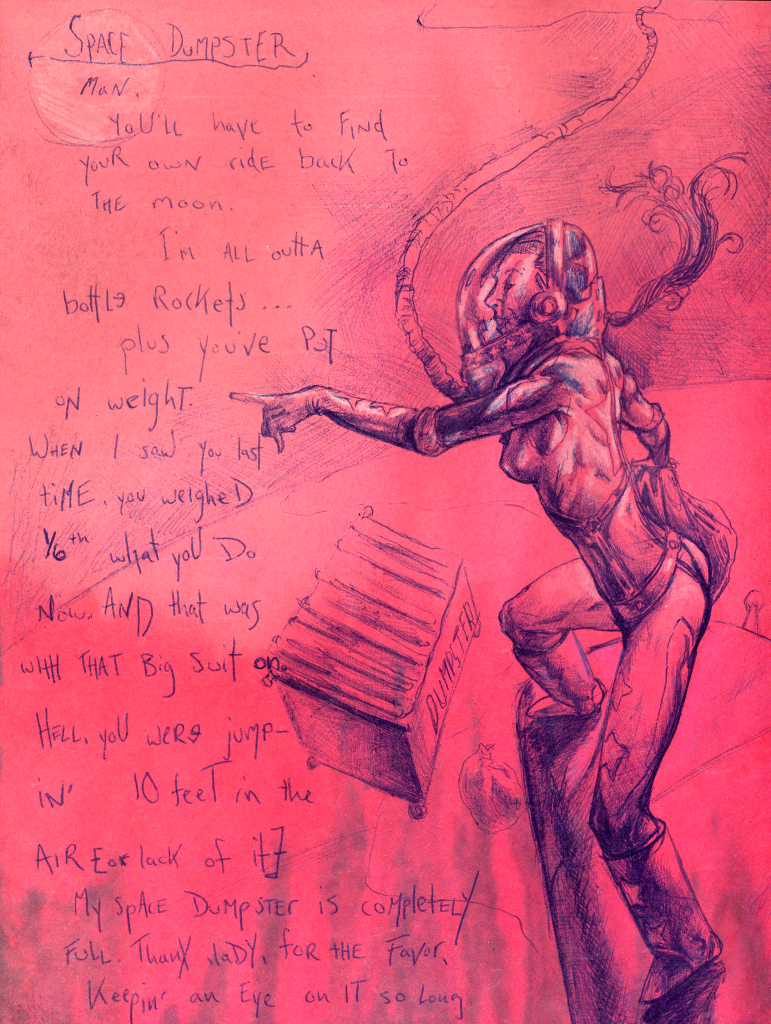 SPACE DUMPSTER
MAN.
YoU'll have to FIND
youR own ride back To
THE moon.
I'm ALL outtA
bottle Rockets...
plus you've PuT
oN weight.
WHEN I saw you last
tiME, you weigheD
1/6th what yoU Do
Now. AND that was
with THAT Big Suit on.
HELL, yoU were jump-
iN' 10 feeT in the
AIR [or lack of it]
My spAce DumpSTER is completELY
FULL. Thanx, laDY, foR THE FavoR,
Keepin' an EyE on IT so Long
DUMPSTER